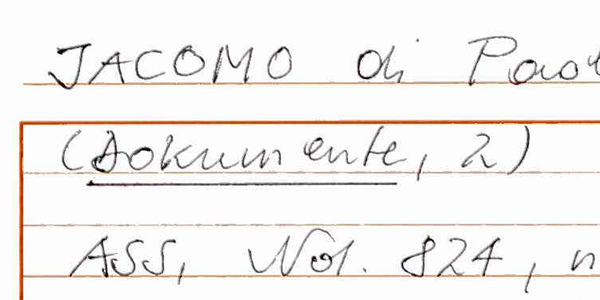 JACOMO di Paol
(Dokumente, 2)
ASS, Not. 824, n